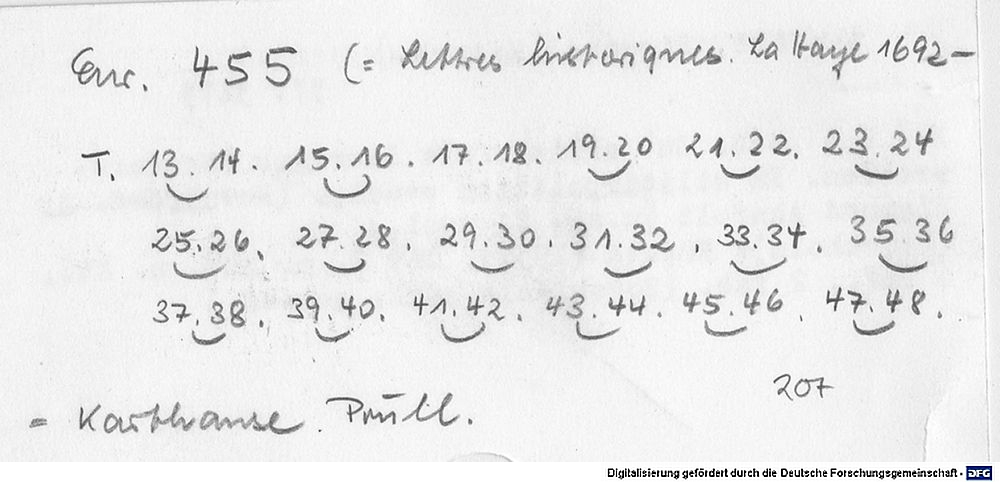 Eur. 455 (= Lettres historiques. La Haye 1692–
T. 13.14. 15.16. 17.18. 19.20 21.22. 23.24
25.26. 27.28. 29.30. 31.32. 33.34. 35.36
37.38. 39.40. 41.42. 43.44. 45.46. 47.48.
207
= Karthause Prüll.
Digitalisierung gefördert durch die Deutsche Forschungsgemeinschaft - DFG